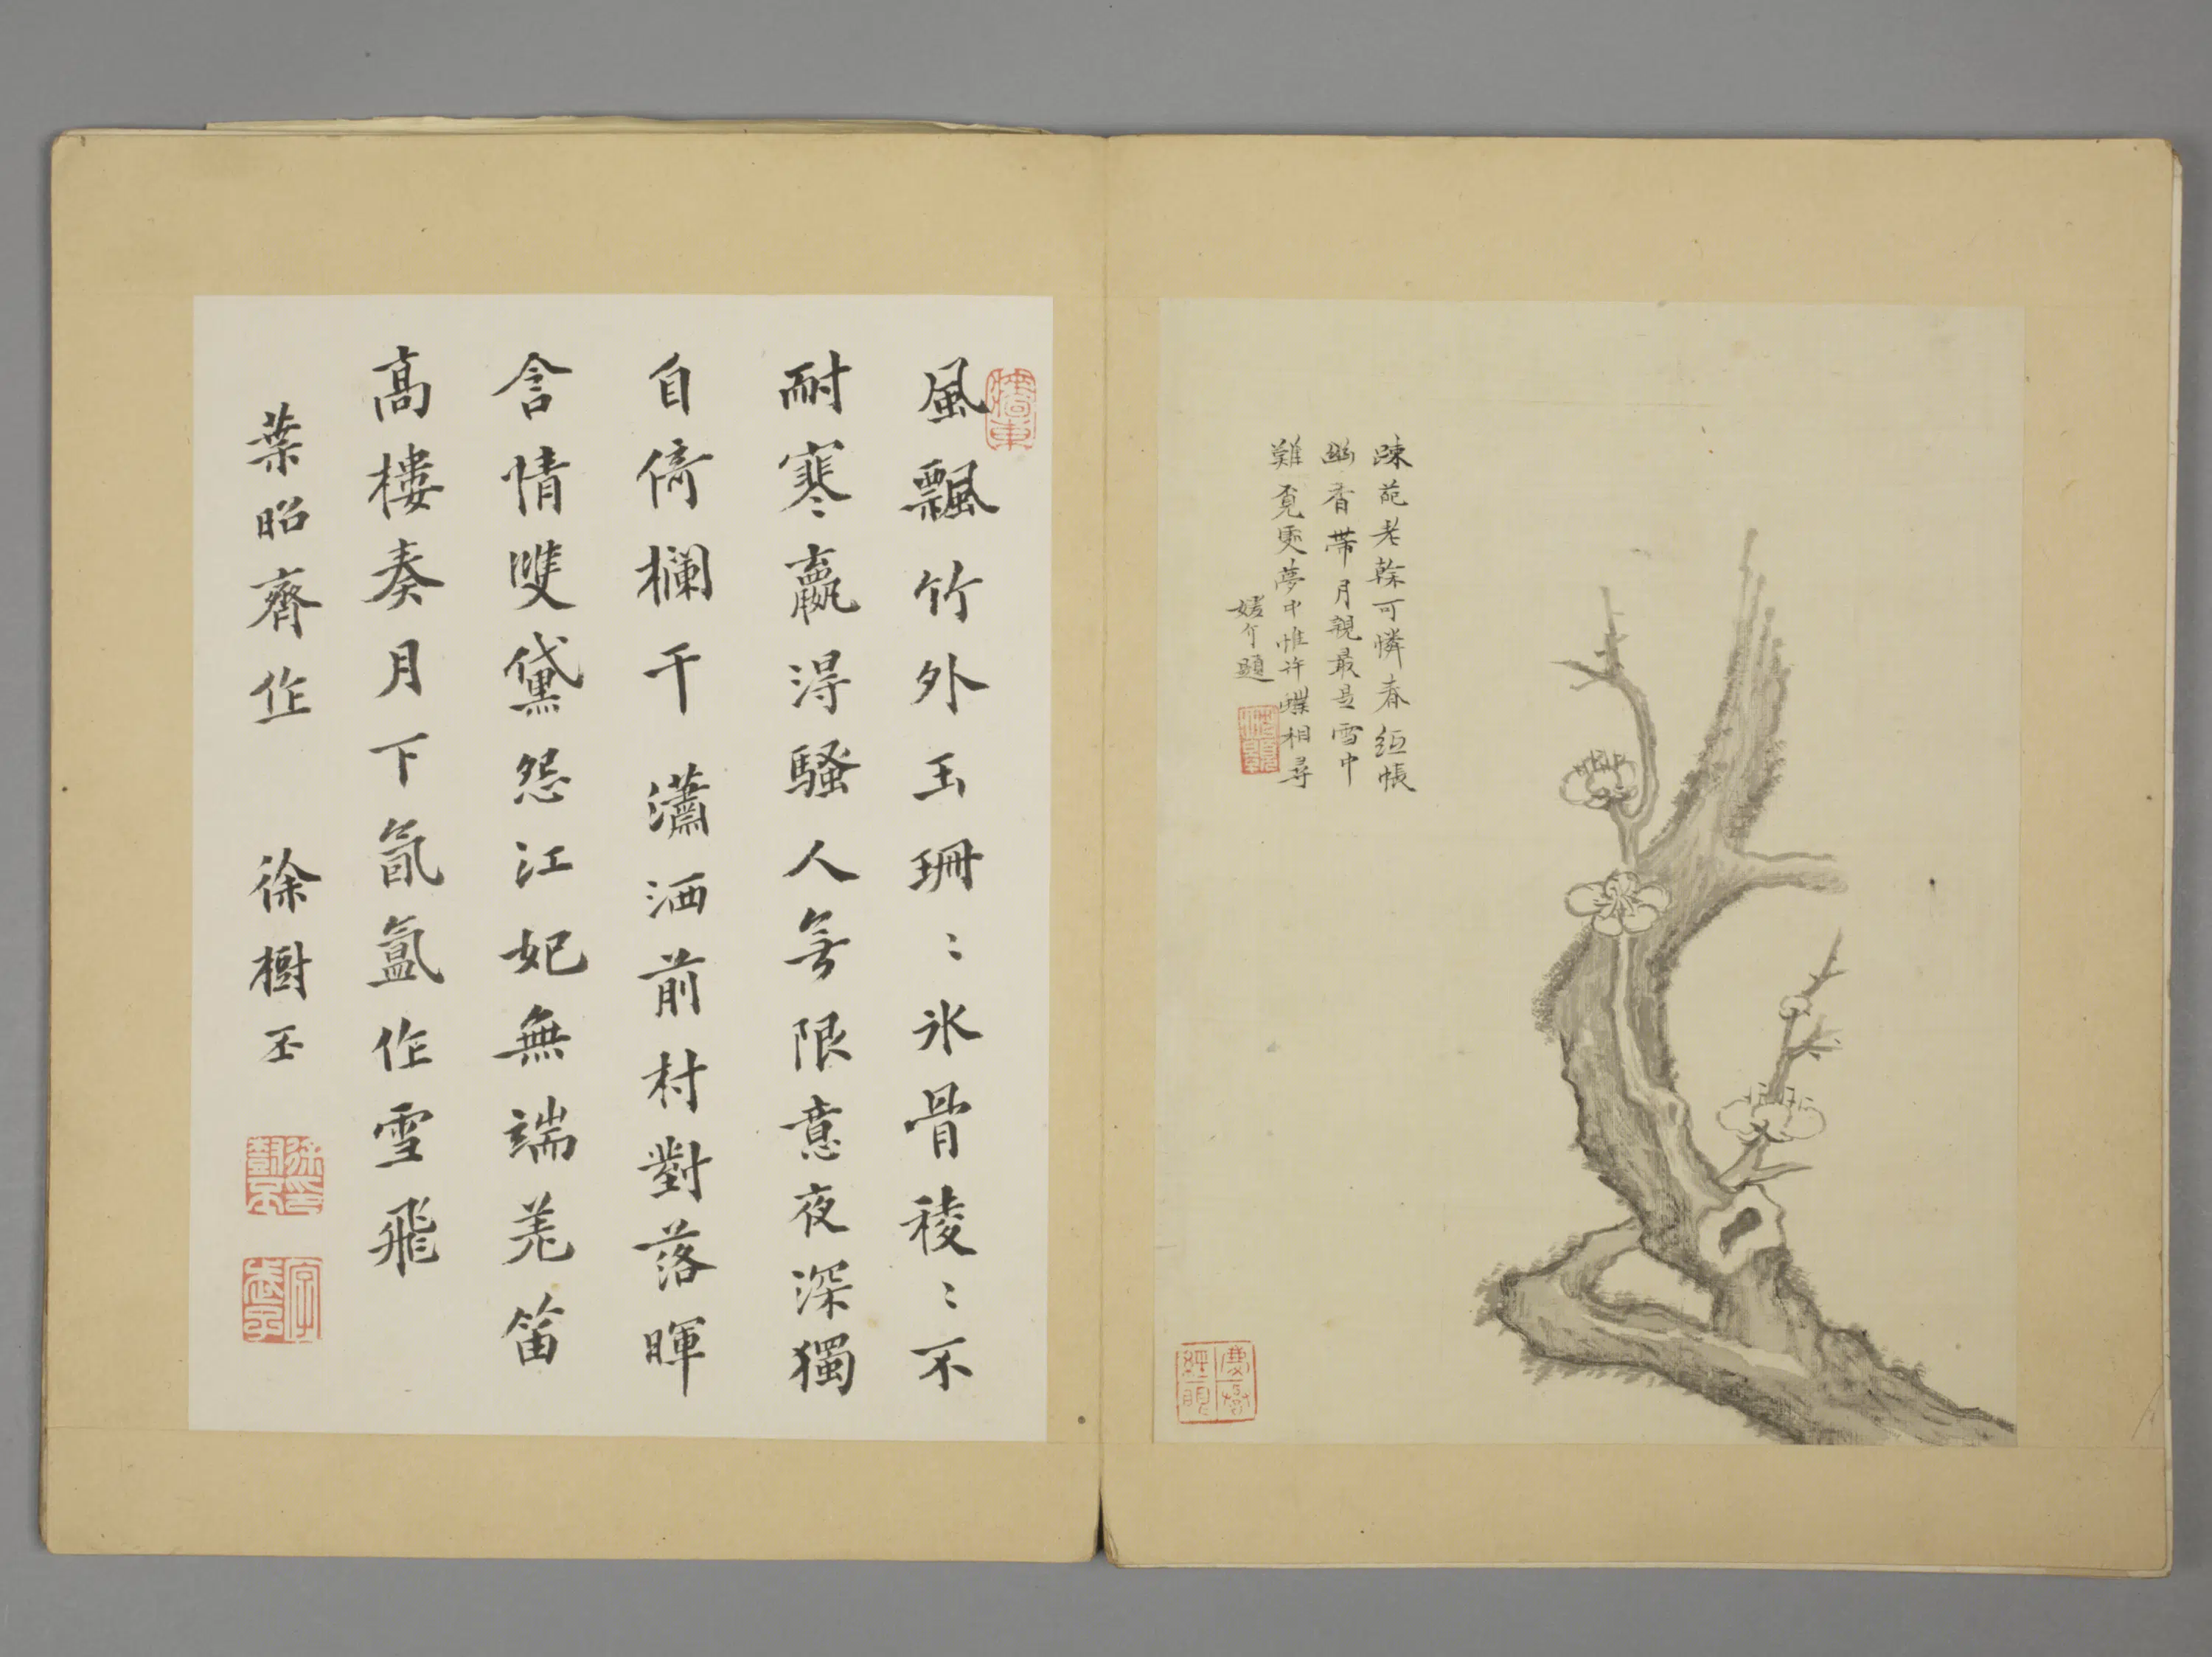 疎葩老榦可憐春紙帳
幽香帶月親最是雪中
難覓處夢中惟許蝶相尋
媛介題
牆東
風飄竹外玉珊〻氷骨稜〻不
耐寒贏得騷人無限意夜深獨
自倚欄干 瀟洒前村對落暉
含情雙黛怨江妃無端羌笛
高樓奏月下氤氳作雪飛
葉昭齊作 徐樹丕
徐樹丕印
字武子